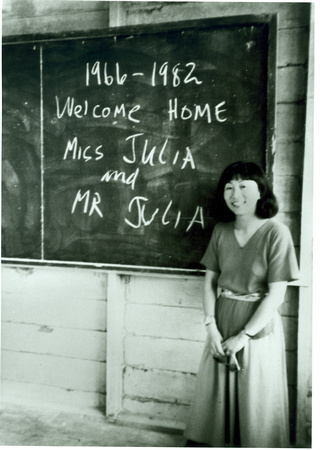 1966-1982
Welcome HOME
Miss JULIA
and
MR JULIA